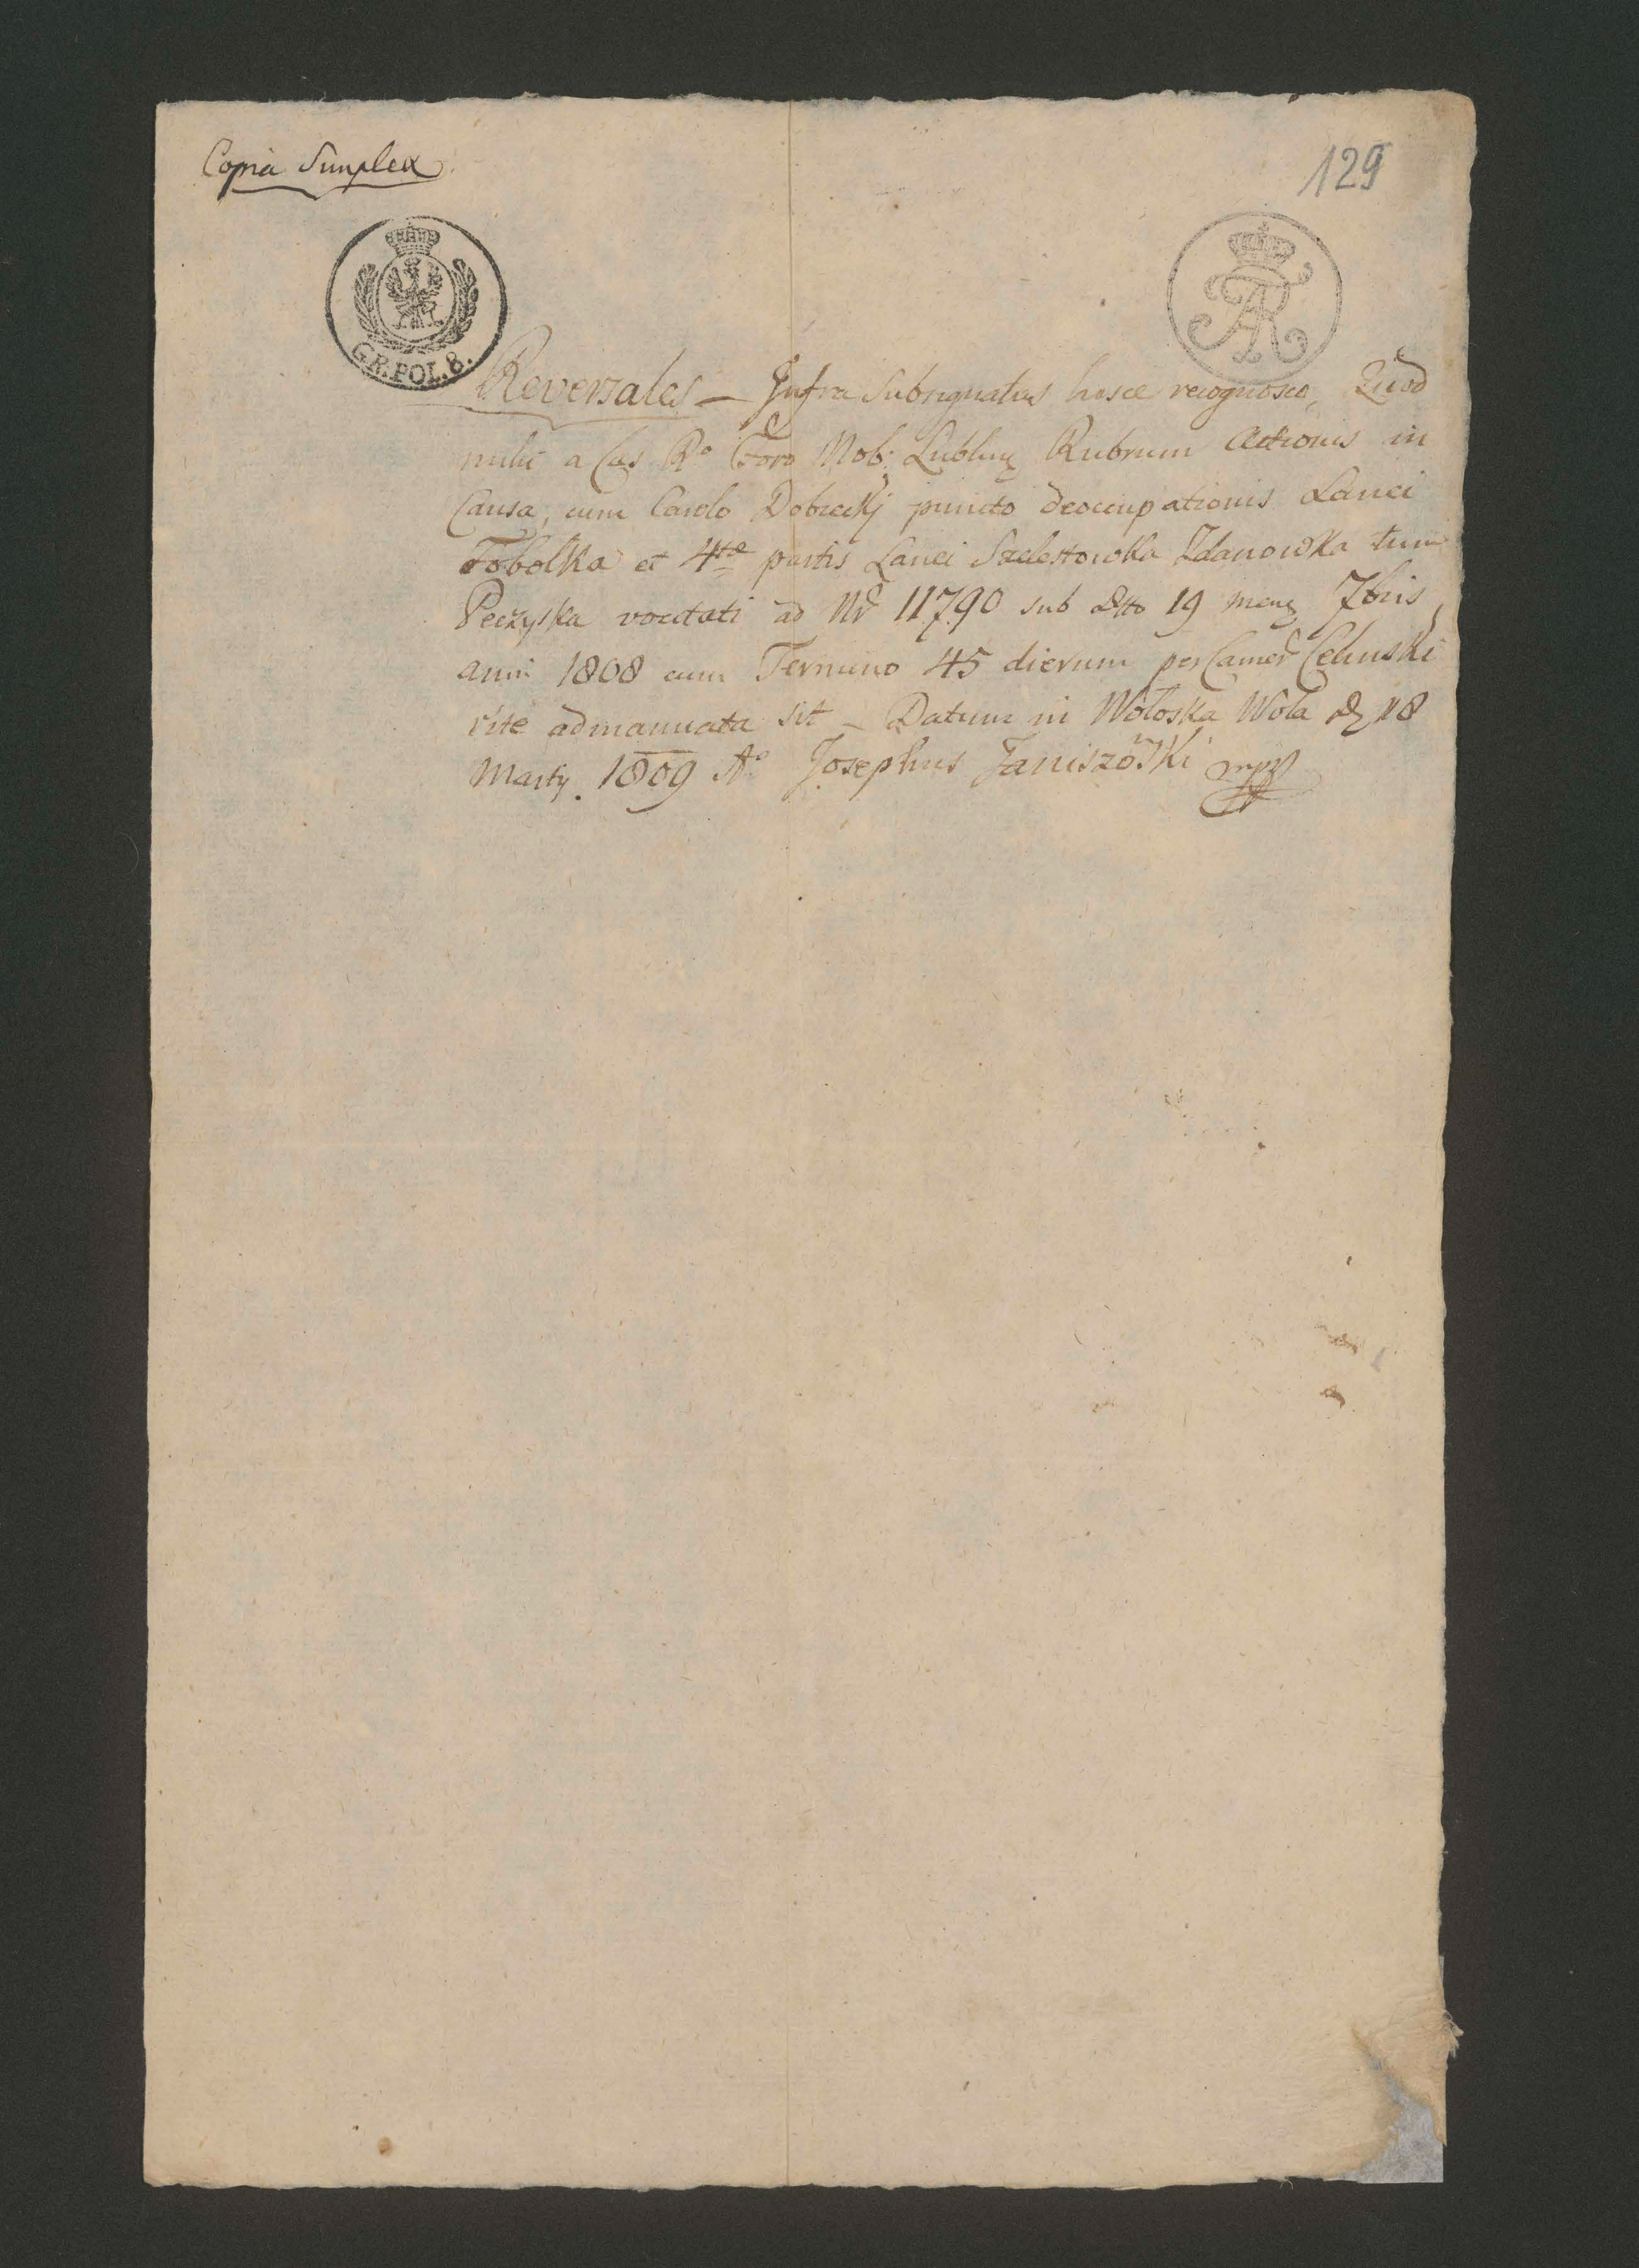 Copia Simplex
129
G.R.POL.8.
AR
Reversales – Infra Subsignatus hisce recognosco, Quod
mihi a Cas Ro Foro Nob: Lublinę Rubrum Actionis in
Causa, cum Carolo Dobrecky puncto deoccupationis Lanei
Tobolka et 4tæ partis Lanei Szelestowka Zdanowka tum
Peczyska vocitati ad Nr 11790 sub dtto 19 menę 7bris
anni 1808 cum Termino 45 dierum per Camer Celinski
rite admanuata sit – Datum in Wołoska Wola dę 18
Marty. 1809 Ao Josephus Janiszowski mpp